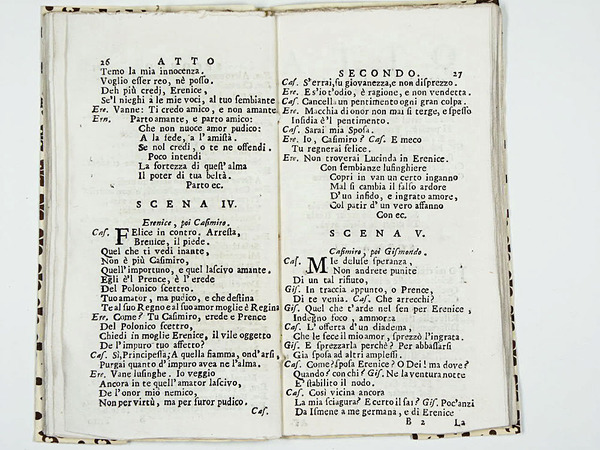 26 ATTO
Temo la mia innocenza.
Voglio esser reo, nè posso.
Deh più credj, Erenice,
Se'l nieghi a le mie voci, al tuo sembiante.
Ere. Vanne: Ti credo amico, e non amante.
Ern. Parto amante, e parto amico:
Che non nuoce amor pudico:
A la fede, a l'amistà.
Se nol credi, o te ne offendi.
Poco intendi
La fortezza di quest'alma
Il poter di tua beltà.
Parto ec.
SCENA IV.
Erenice, poi Casimiro.
Cas. FElice in contro. Arresta,
Erenice, il piede.
Quel che ti vedi inante,
Non è più Casimiro,
Quell'importuno, e quel lascivo amante.
Egli è'l Prence, è l'erede
Del Polonico scettro.
Tuo amator, ma pudico, e che destina
Te al suo Regno e al suo amor moglie è Regina
Ere. Come? Tu Casimiro, erede e Prence
Del Polonico scettro,
Chiedi in moglie Erenice, il vile oggetto
De l'impuro tuo affetto?
Cas. Sì, Principessa; A quella fiamma, ond'arsi,
Purgai quanto d'impuro avea ne l'alma.
Ere. Vane lusinghe. Io veggio
Ancora in te quell'amator lascivo,
De l'onor mio nemico,
Non per virtù, ma per furor pudico.
Cas.
SECONDO. 27
Cas. S'errai, fu giovanezza, e non disprezzo.
Ere. E s'io t'odio, è ragione, e non vendetta.
Cas. Cancella un pentimento ogni gran colpa.
Ere. Macchia di onor non mai si terge, e spesso
Insidia è'l pentimento.
Cas. Sarai mia Sposa.
Ere. Io, Casimiro? Cas. E meco
Tu regnerai felice.
Ere. Non troverai Lucinda in Erenice.
Con sembianze lusinghiere
Copri in van un certo inganno
Mal si cambia il falso ardore
D'un infido, e ingrato amore,
Col patir d'un vero affanno
Con ec.
SCENA V.
Casimiro, poi Gismondo.
Cas. MIe deluse speranza,
Non andrete punite
Di un tal rifiuto,
Gis. In traccia appunto, o Prence,
Di te venia. Cas. Che arrecchi?
Gis. Quel che t'arde nel sen per Erenice,
Indegno foco, ammorza
Cas. L'offerta d'un diadema,
Che le fece il mio amor, sprezzò l'ingrata.
Gis. E sprezzarla perchè? Per abbassarsi
Già sposa ad altri amplessi.
Cas. Come? sposa Erenice? O Dei! ma dove?
Quando? con chi? Gis. Ne la ventura notte
E' stabilito il nodo.
Cas. Così vicina ancora
La mia sciagura? E certo il sai? Gis. Poc'anzi
Da Ismene a me germana, e di Erenice
B 2 La